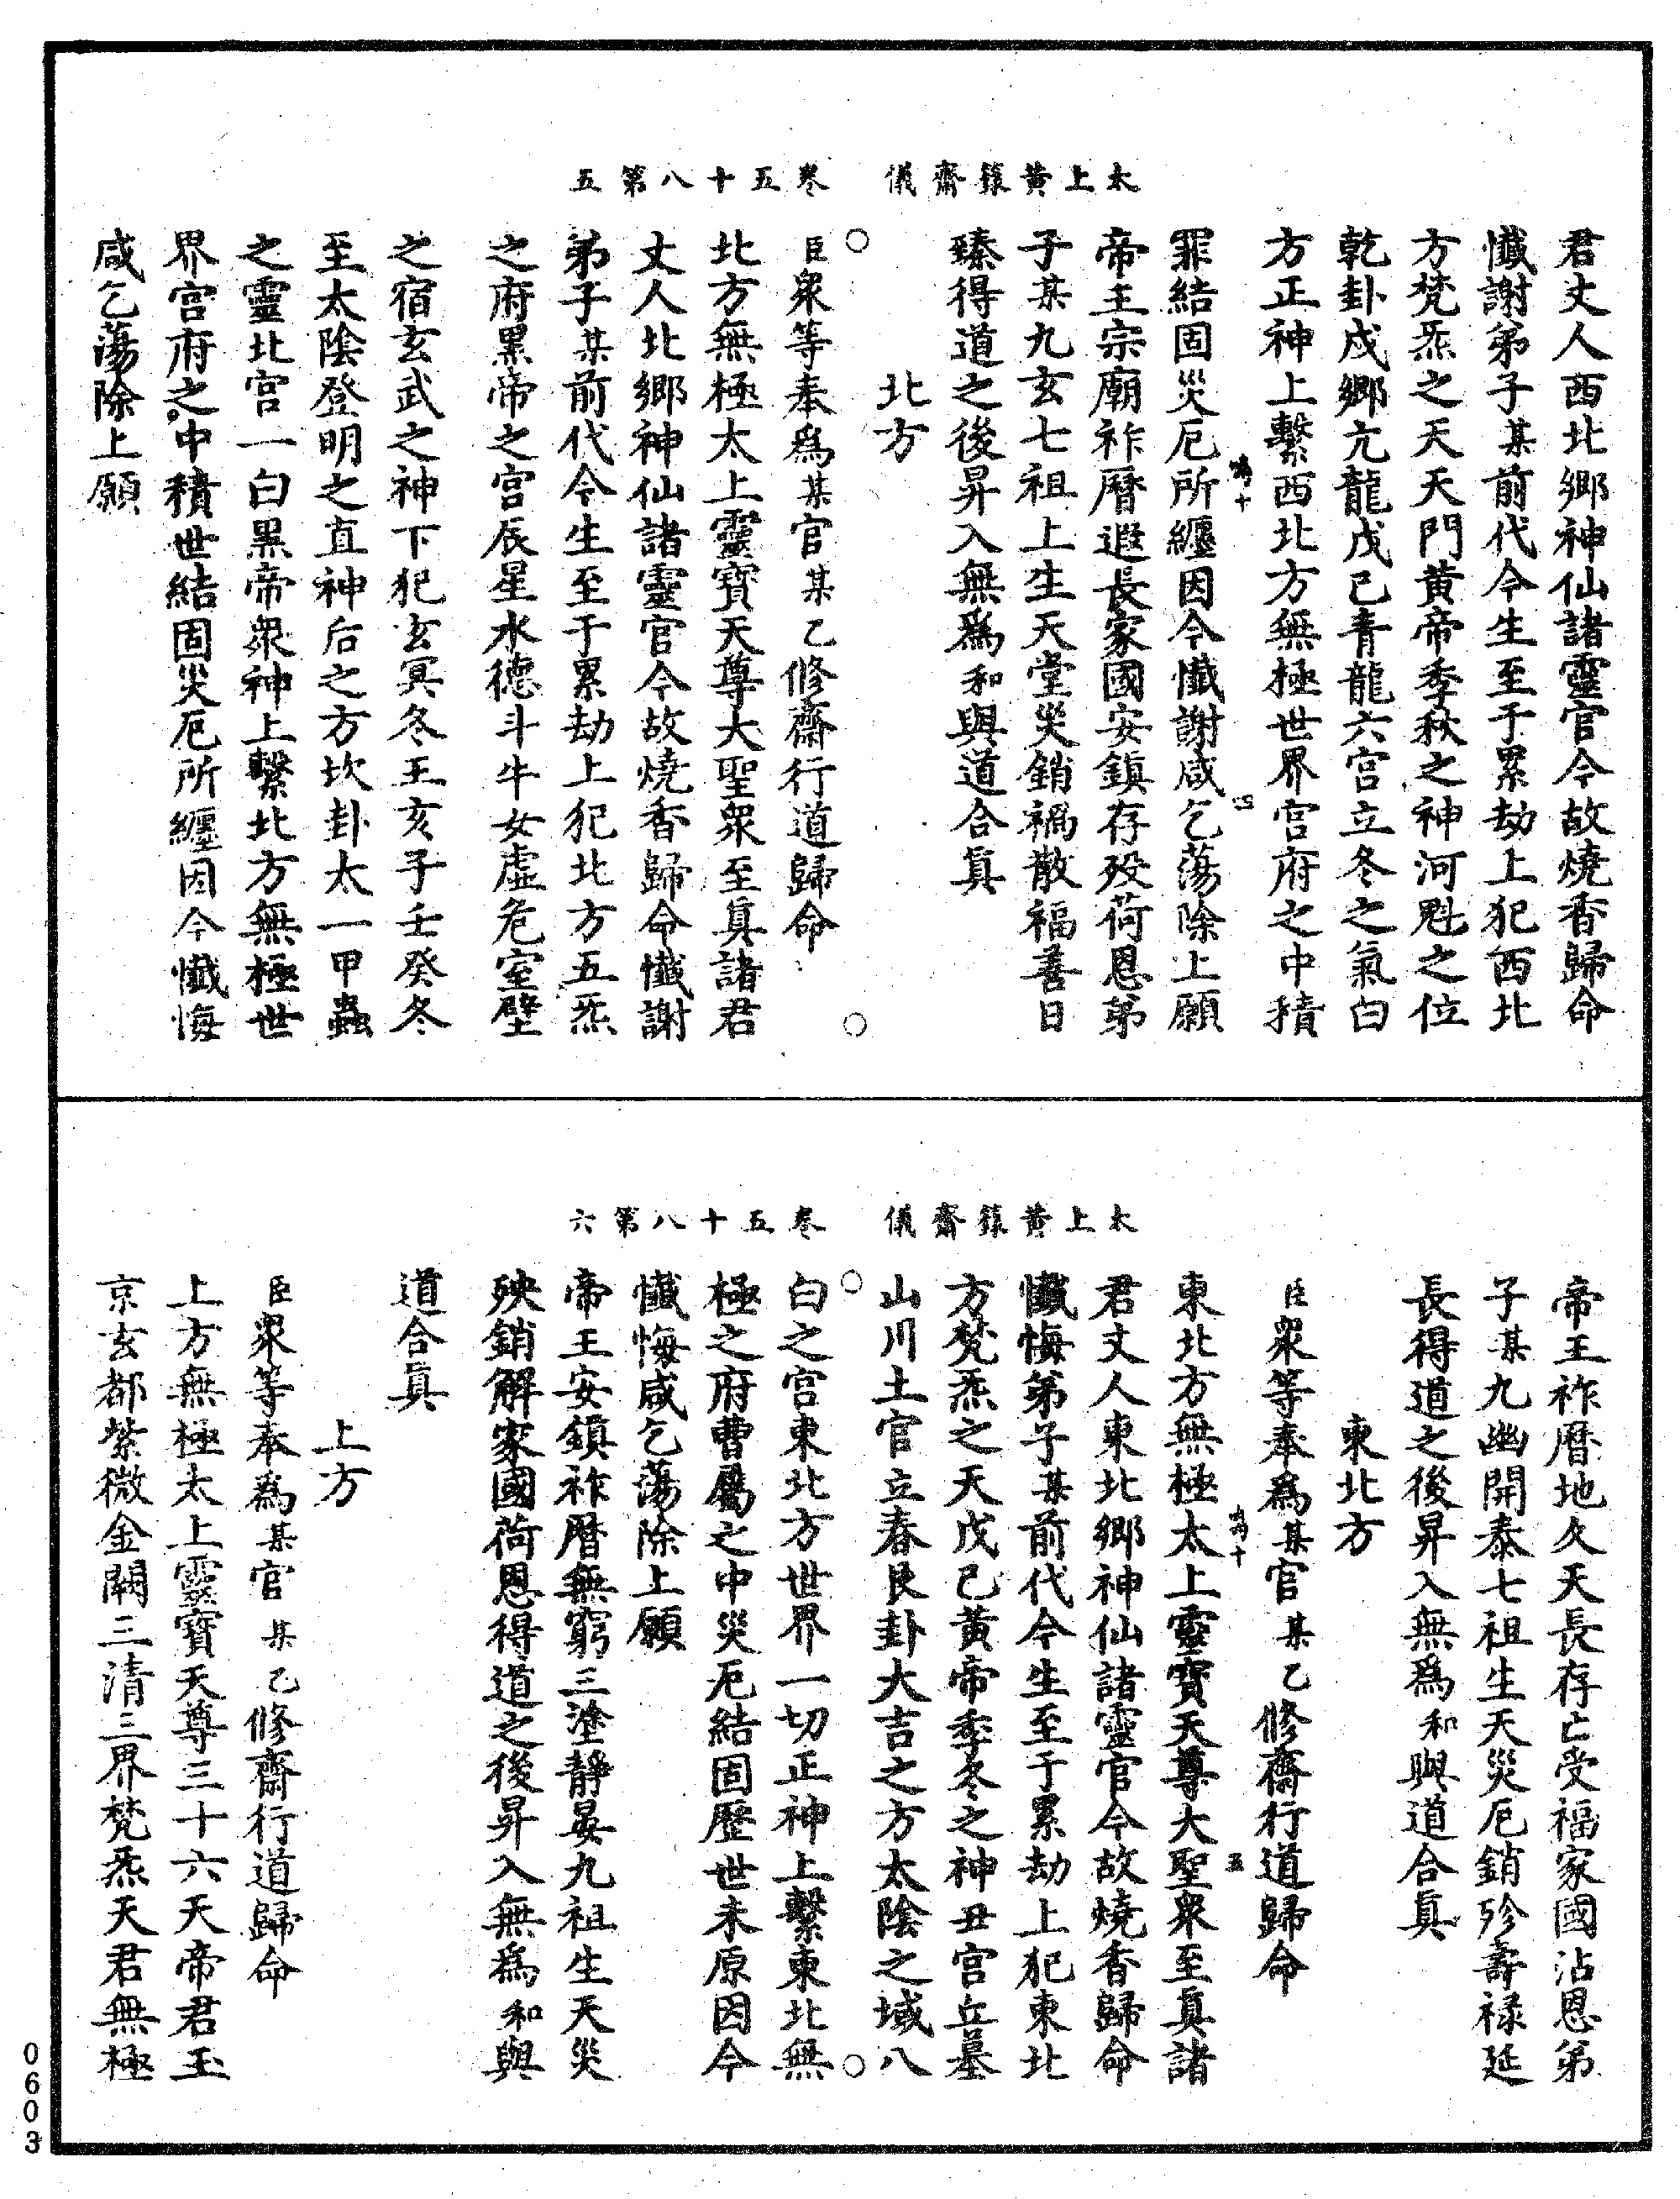 君丈人西北鄉神仙諸靈官今故燒香歸命
懺謝弟子某前代今生至于累劫上犯西北
方梵炁之天天門黃帝季秋之神河魁之位
乾卦戍鄉亢龍戊己青龍六宮立冬之氣白
方正神上繫西北方無極世界宮府之中積
罪結固災厄所纏因今懺謝咸乞蕩除上願
帝王宗廟祚曆遐長家國安鎮存歿荷恩弟
子某九玄七祖上生天堂災銷禍散福善日
臻得道之後昇入無爲和與道合真
北方
太上黃籙齋儀
卷五十八第五
臣衆等奉爲某官某乙修齋行道歸命
北方無極太上靈寶天尊大聖衆至真諸君
丈人北鄉神仙諸靈官今故燒香歸命懺謝
弟子某前代今生至于累劫上犯北方五炁
之府黑帝之宮辰星水德斗牛女虛危室壁
之宿玄武之神下犯玄冥冬王亥子壬癸冬
至太陰登明之直神后之方坎卦太一甲蟲
之靈北宮一白黑帝衆神上繫北方無極世
界宮府之中積世結固災厄所纏因今懺悔
咸乞蕩除上願
帝王祚曆地久天長存亡受福家國沾恩弟
子某九幽開泰七祖生天災厄銷殄壽祿延
長得道之後昇入無爲和與道合真
東北方
臣衆等奉爲某官某乙修齋行道歸命
東北方無極太上靈寶天尊大聖衆至真諸
君丈人東北鄉神仙諸靈官今故燒香歸命
懺悔弟子某前代今生至于累劫上犯東北
方梵炁之天戊己黃帝季冬之神丑宮丘墓
山川土官立春艮卦大吉之方太陰之域八
太上黃籙齋儀
卷五十八第六
白之宮東北方世界一切正神上繫東北無
極之府曹屬之中災厄結固歷世未原因今
懺悔咸乞蕩除上願
帝王安鎮祚曆無窮三塗靜晏九祖生天災
殃銷解家國荷恩得道之後昇入無爲和與
道合真
上方
臣衆等奉爲某官某乙修齋行道歸命
上方無極太上靈寶天尊三十六天帝君玉
京玄都紫微金闕三清三界梵炁天君無極
0603